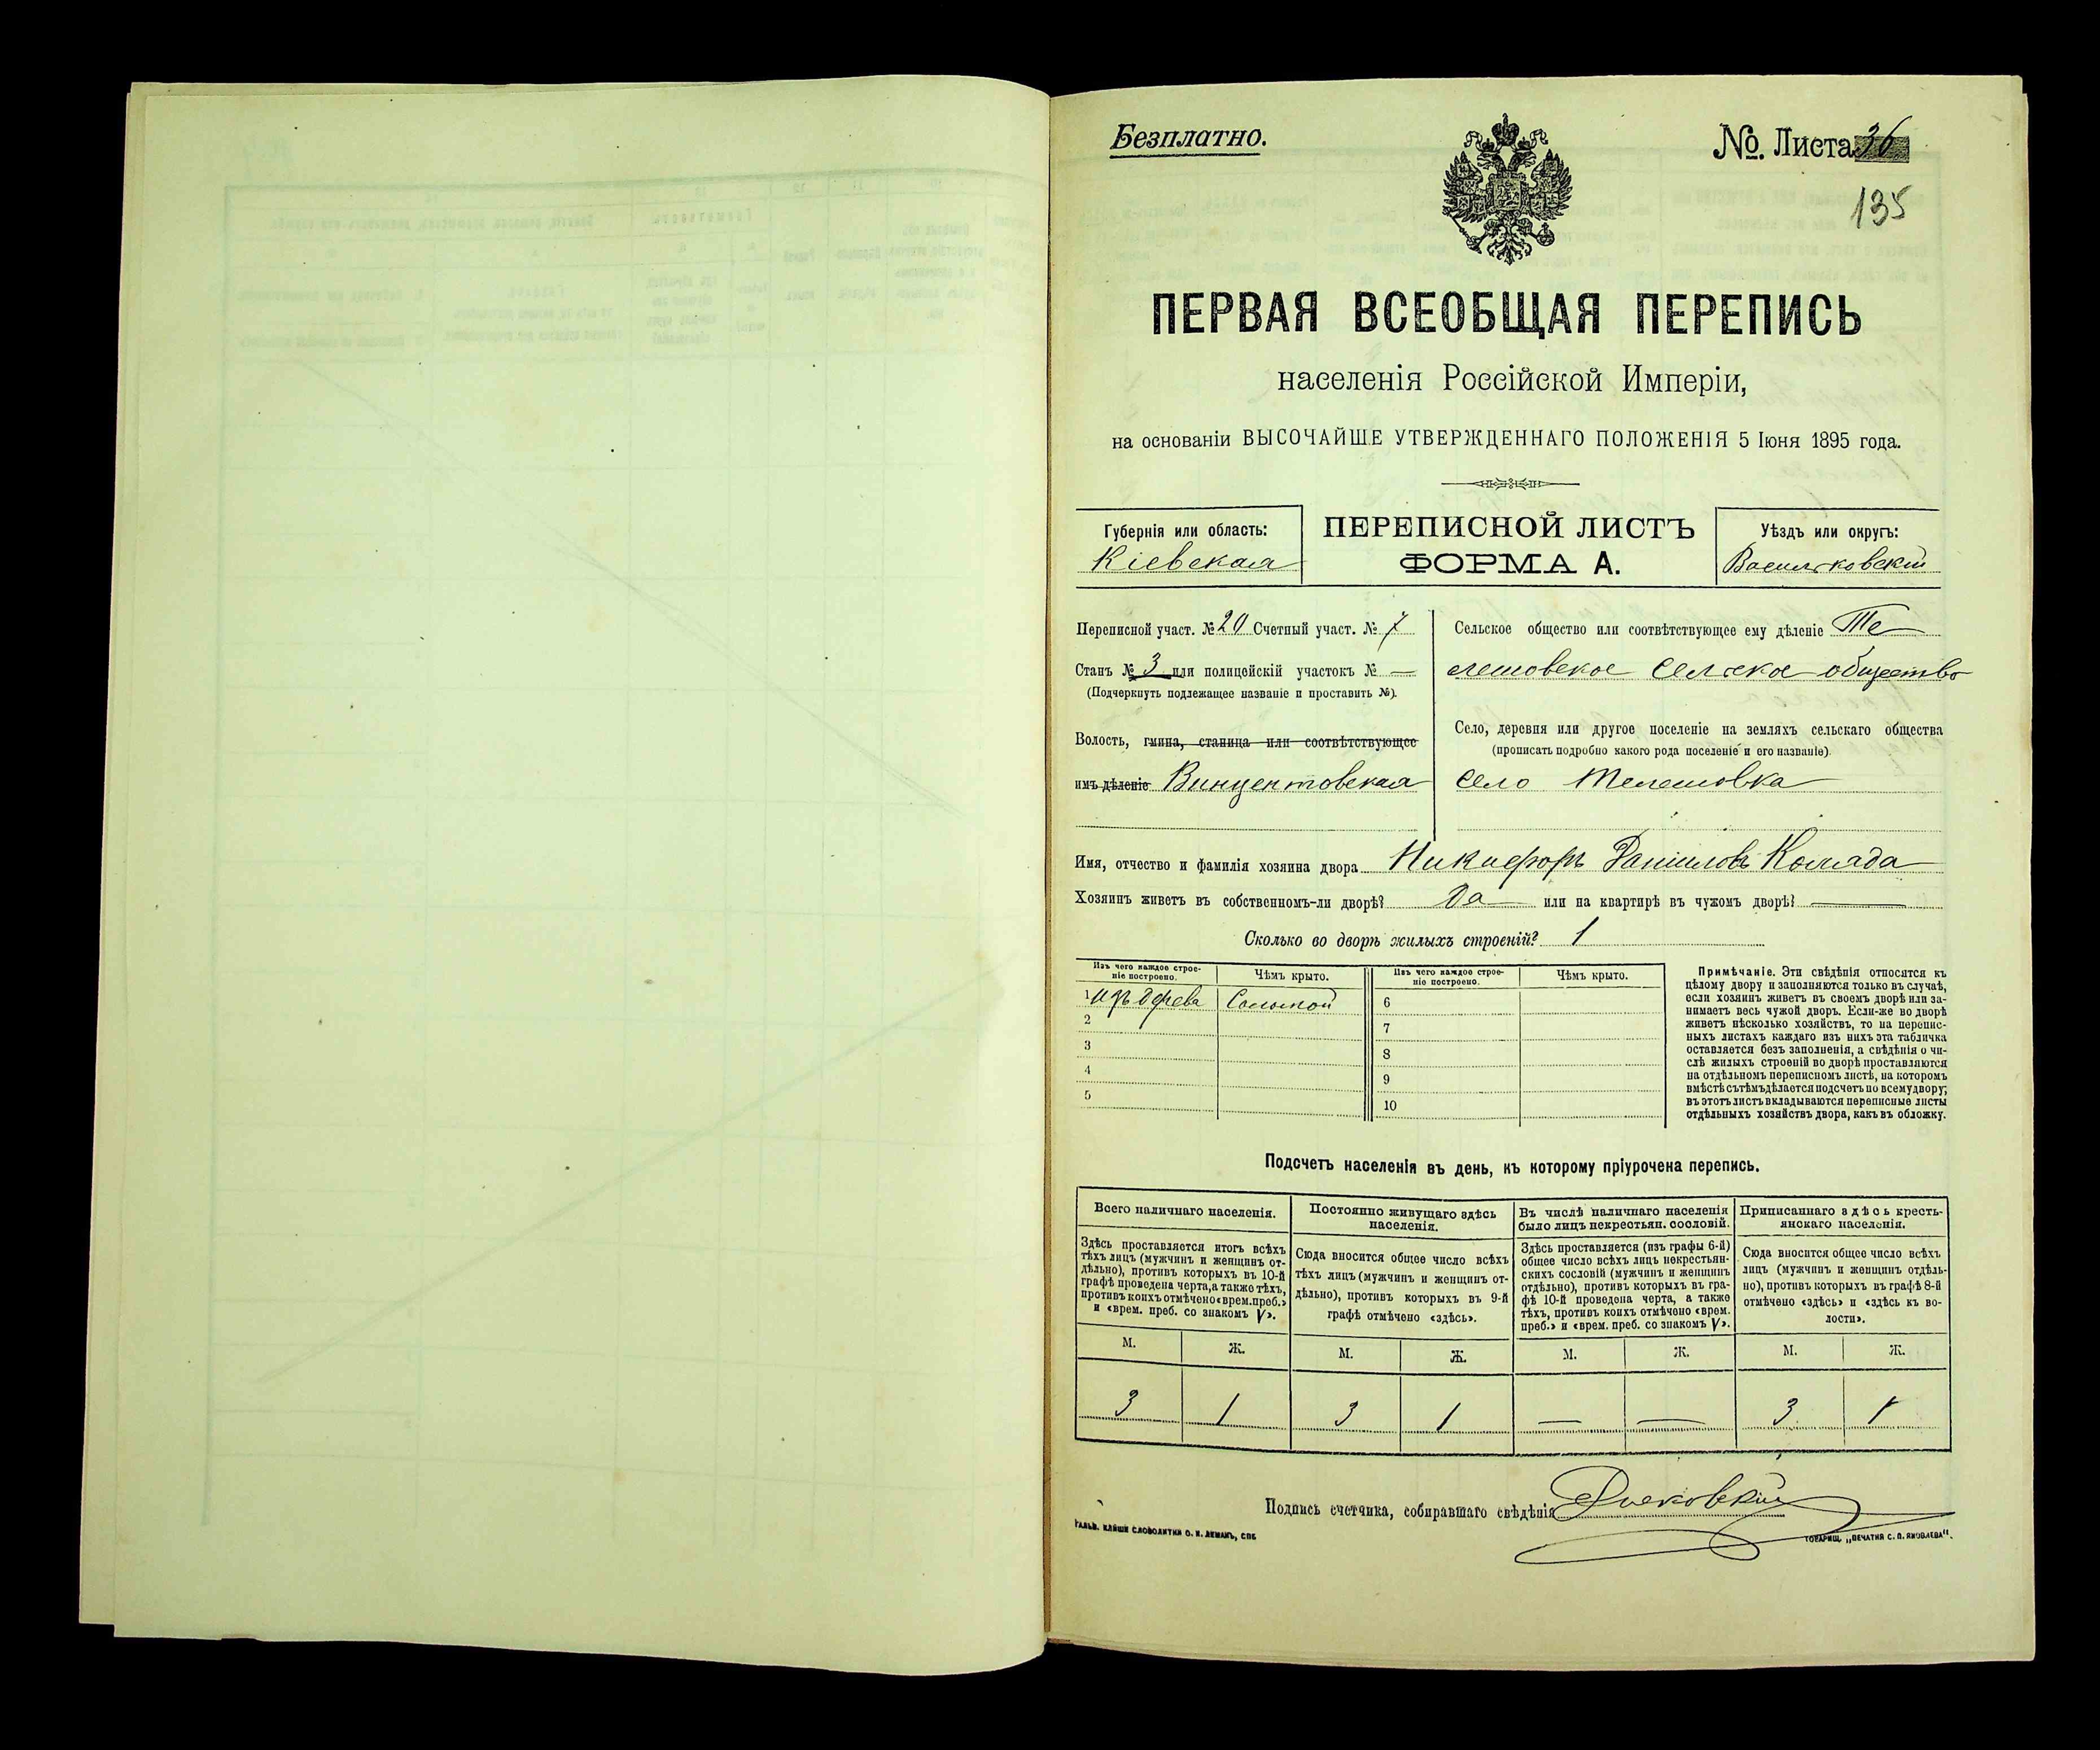 Безплатно.
№. Листа 36
135
ПЕРВАЯ ВСЕОБЩАЯ ПЕРЕПИСЬ
населенія Россійской Имперіи,
на основаніи ВЫСОЧАЙШЕ УТВЕРЖДЕННАГО ПОЛОЖЕНІЯ 5 Іюня 1895 года.
Губернія или область:
Кіевская
ПЕРЕПИСНОЙ ЛИСТЪ
ФОРМА А.
Уѣздъ или округъ:
Васильковскій
Переписной участ. № 20 Счетный участ. № 7
Станъ № 3 или полицейскій участокъ № —
(Подчеркнуть подлежащее названіе и проставить №).
Волость, гмина, станица или соотвѣтствующее
имъ дѣленіе Винцентовская
Сельское общество или соотвѣтствующее ему дѣленіе Те
лешовское сельское общество
Село, деревня или другое поселеніе на земляхъ сельскаго общества
(прописать подробно какого рода поселеніе и его названіе).
село Телешовка
Имя, отчество и фамилія хозяина двора Никифоръ Даниловъ Коляда
Хозяинъ живетъ въ собственномъ-ли дворѣ? Да или на квартирѣ въ чужомъ дворѣ? —
Сколько во дворѣ жилыхъ строеній? 1
Изъ чего каждое строе-
ніе построено.
Чѣмъ крыто.
Изъ чего каждое строе-
ніе построено.
Чѣмъ крыто.
1 изъ древа Соломой
2
3
4
5
6
7
8
9
10
Примѣчаніе. Эти свѣдѣнія относятся къ
цѣлому двору и заполняются только въ случаѣ,
если хозяинъ живетъ въ своемъ дворѣ или за-
нимаетъ весь чужой дворъ. Если-же во дворѣ
живетъ нѣсколько хозяйствъ, то на перепис-
ныхъ листахъ каждаго изъ нихъ эта табличка
оставляется безъ заполненія, а свѣдѣнія о чи-
слѣ жилыхъ строеній во дворѣ проставляются
на отдѣльномъ переписномъ листѣ, на которомъ
вмѣстѣ съ тѣмъ дѣлается подсчетъ по всему двору;
въ этотъ листъ вкладываются переписные листы
отдѣльныхъ хозяйствъ двора, какъ въ обложку.
Подсчетъ населенія въ день, къ которому пріурочена перепись.
Всего наличнаго населенія.
Здѣсь проставляется итогъ всѣхъ
тѣхъ лицъ (мужчинъ и женщинъ от-
дѣльно), противъ которыхъ въ 10-й
графѣ проведена черта, а также тѣхъ,
противъ коихъ отмѣчено «врем. преб.»
и «врем. преб. со знакомъ V».
Постоянно живущаго здѣсь
населенія.
Сюда вносится общее число всѣхъ
тѣхъ лицъ (мужчинъ и женщинъ от-
дѣльно), противъ которыхъ въ 9-й
графѣ отмѣчено «здѣсь».
Въ числѣ наличнаго населенія
было лицъ некрестьян. сословій.
Здѣсь проставляется (изъ графы 6-й)
общее число всѣхъ лицъ некрестьян-
скихъ сословій (мужчинъ и женщинъ
отдѣльно), противъ которыхъ въ гра-
фѣ 10-й проведена черта, а также
тѣхъ, противъ коихъ отмѣчено «врем.
преб.» и «врем. преб. со знакомъ V».
Приписаннаго здѣсь кресть-
янскаго населенія.
Сюда вносится общее число всѣхъ
лицъ (мужчинъ и женщинъ отдѣль-
но), противъ которыхъ въ графѣ 8-й
отмѣчено «здѣсь» и «здѣсь къ во-
лости».
М. Ж. М. Ж. М. Ж. М. Ж.
3 1 3 1 — — 3 1
Подпись счетчика, собиравшаго свѣдѣнія
ГАЛЬВ. КЛИШЕ СЛОВОЛИТНИ О. И. ЛЕМАНЪ, СПБ
ТОВАРИЩ. „ПЕЧАТНЯ С. П. ЯКОВЛЕВА".